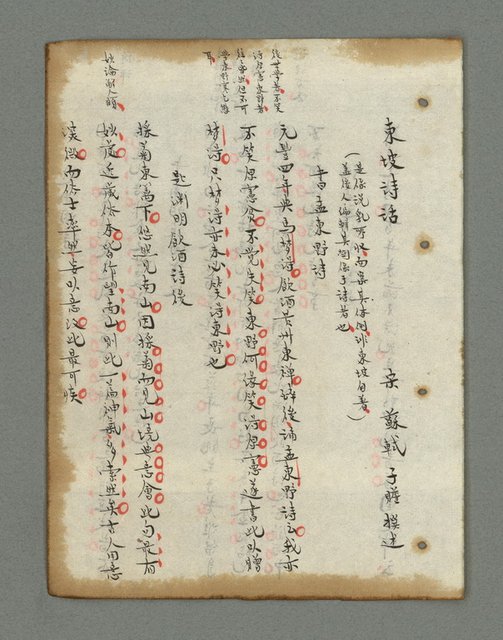 東坡詩話
宋 蘇軾 子瞻 撰述
(是係說乳所收而異其體例非東坡自著
蓋後人編輯其關係于詩者也)
書孟東野詩
元豐四年與馬夢得飲酒黃州東禪醉後誦孟東野詩云我亦
不笑原憲貧不覺失笑東野何緣笑得原憲遂書此以贈
夢得只夢得亦未必笑得東野也
題淵明飲酒詩後
採菊東籬下悠然見南山因採菊而見山境與意會此句最有
妙處近歲俗本皆作望南山則此一篇神氣都索然矣古人用意
深微而俗士率然妄以意改此最可疾
後世學者不
詩
耳
妙論解人頤